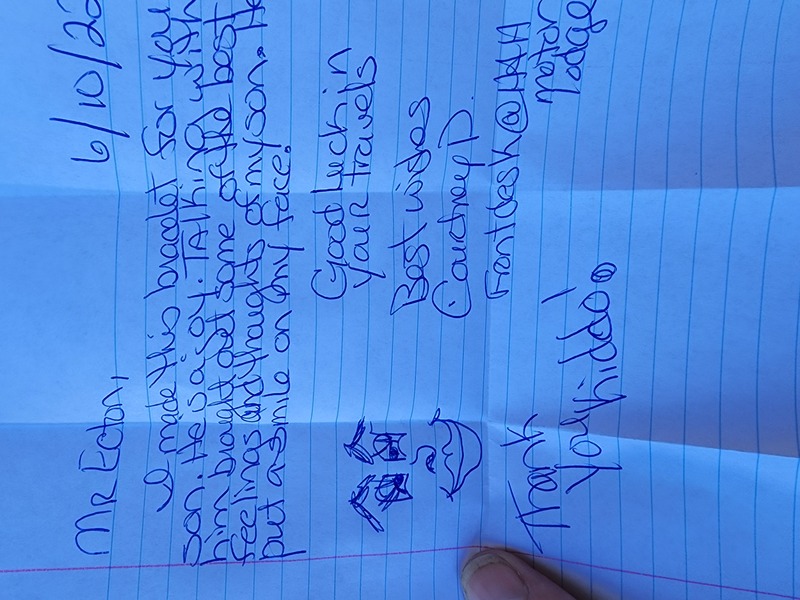 6/10/22
Mr Ecton,
I made this bracelet for your
son. He is a joy. Talking with
him brought out some of the best
feelings and thoughts of my son. He
put a smile on my face.
Good luck in
your travels
Best wishes
Courtney D.
Front desk @ H&H
motor
lodge
Thank
you kiddo